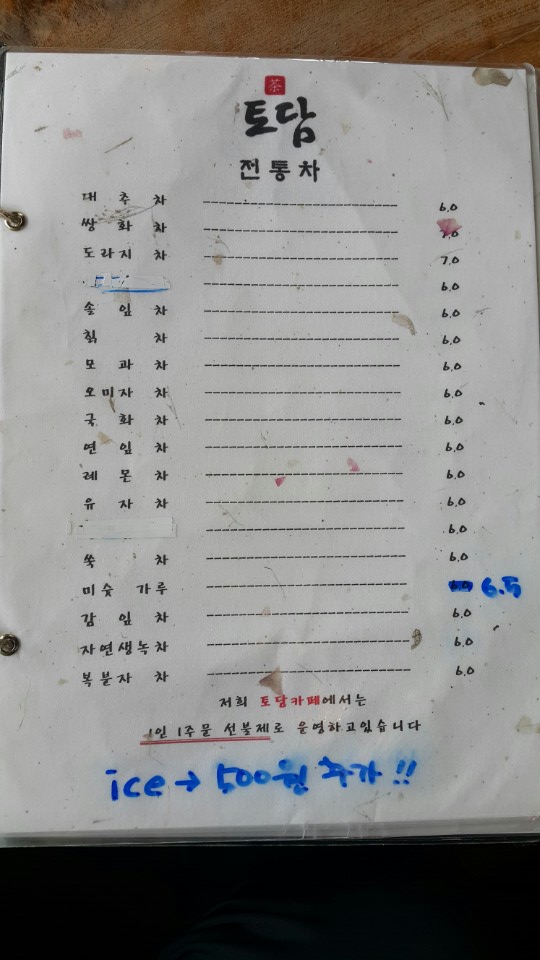 茶
토담
전통차
대추차 6.0
쌍화차
도라지차 7.0
6.0
솔잎차 6.0
칡차 6.0
모과차 6.0
오미자차 6.0
국화차 6.0
연잎차 6.0
레몬차 6.0
유자차 6.0
6.0
쑥차 6.0
미숫가루 6.5
감잎차 6.0
자연생녹차 6.0
복분자차 6.0
저희 토담카페에서는
1인 1주문 선불제로 운영하고있습니다
ice → 500원 추가 !!